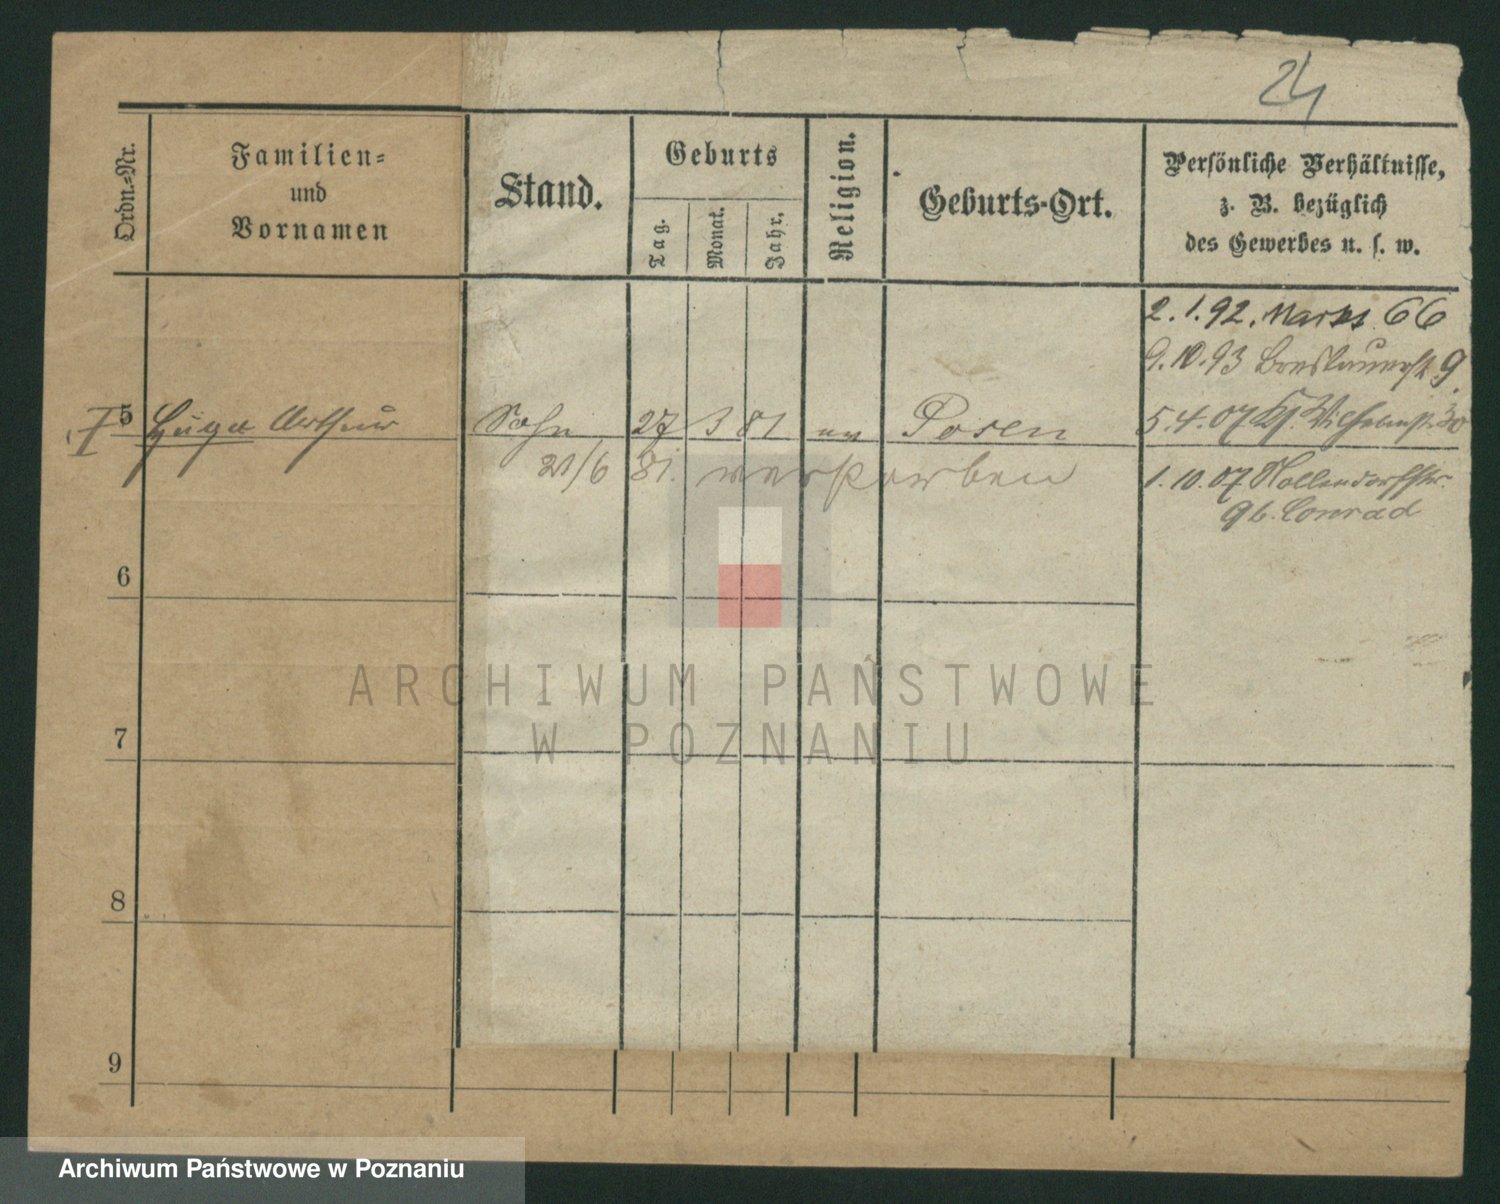 24
Ordn.-Nr.
Familien-
und
Vornamen
Stand.
Geburts
Tag.
Monat.
Jahr.
Religion.
Geburts-Ort.
Persönliche Verhältnisse,
z. B. bezüglich
des Gewerbes u. s. w.
2.1.92. 66
9.10.93 Breslauerst 9.
5 Hugo Arthur Sohn 27 3 81 ev Posen 5.4.07 Kl. Wilhelmst.
21/6 81. verstorben
1.10.07 Nollendorffstr.
9 b. Conrad
6
7
8
9
ARCHIWUM PAŃSTWOWE
W POZNANIU
Archiwum Państwowe w Poznaniu